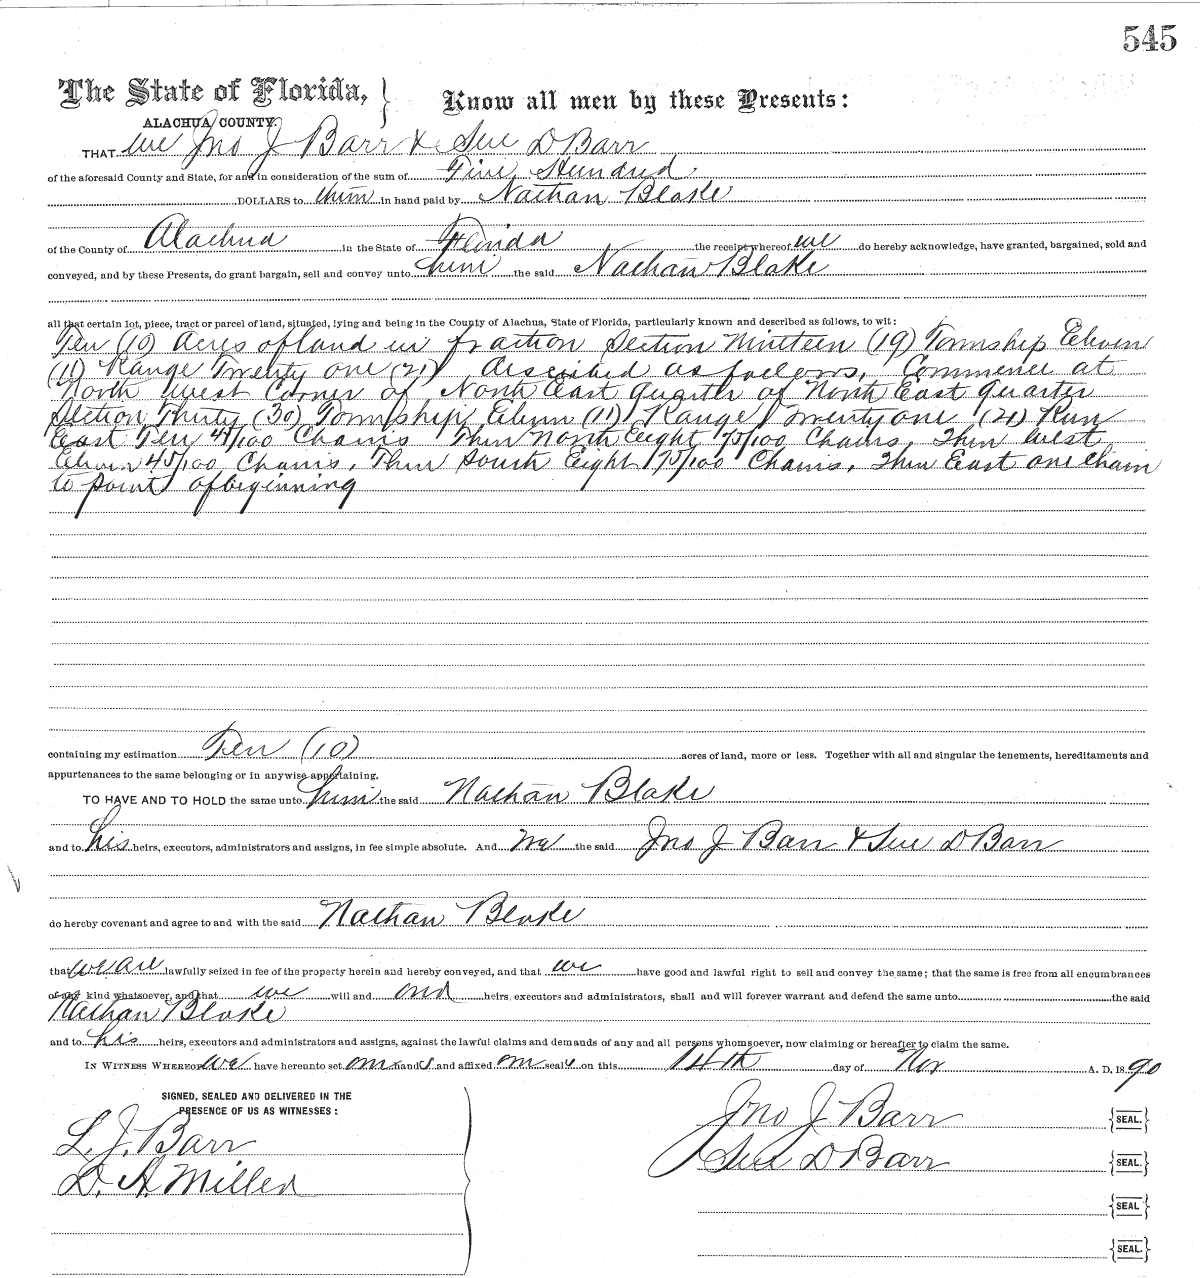 545
The State of Florida, } Know all men by these Presents:
ALACHUA COUNTY.
THAT we Jno J Barr & Sue D Barr
of the aforesaid County and State, for and in consideration of the sum of Five Hundred
DOLLARS to them in hand paid by Nathan Blake
of the County of Alachua in the State of Florida the receipt whereof we do hereby acknowledge, have granted, bargained, sold and
conveyed, and by these Presents, do grant bargain, sell and convey unto him the said Nathan Blake
all that certain lot, piece, tract or parcel of land, situated, lying and being in the County of Alachua, State of Florida, particularly known and described as follows, to wit:
Ten (10) Acres of land in fraction Section Nineteen (19) Township Eleven
(11) Range Twenty one (21) described as follows, Commence at
North West Corner of North East Quarter of North East Quarter
Section Thirty (30) Township Eleven (11) Range Twenty one (21) Run
East Ten 45/100 Chains Then North Eight 75/100 Chains, Then West
Eleven 45/100 Chains, Then South Eight 75/100 Chains, Then East one Chain
to point of beginning
containing my estimation Ten (10) acres of land, more or less. Together with all and singular the tenements, hereditaments and
appurtenances to the same belonging or in anywise appertaining.
TO HAVE AND TO HOLD the same unto him the said Nathan Blake
and to his heirs, executors, administrators and assigns, in fee simple absolute. And we the said Jno J Barr & Sue D Barr
do hereby covenant and agree to and with the said Nathan Blake
that we are lawfully seized in fee of the property herein and hereby conveyed, and that we have good and lawful right to sell and convey the same; that the same is free from all encumbrances
of any kind whatsoever, and that we will and our heirs, executors and administrators, shall and will forever warrant and defend the same unto the said
Nathan Blake
and to his heirs, executors and administrators and assigns, against the lawful claims and demands of any and all persons whomsoever, now claiming or hereafter to claim the same.
IN WITNESS WHEREOF we have hereunto set our hands and affixed our seals on this 14th day of Nov A. D. 1890
SIGNED, SEALED AND DELIVERED IN THE
PRESENCE OF US AS WITNESSES:
Jno J Barr {SEAL.}
L. J. Barr
Sue D Barr {SEAL.}
D. A. Miller
{SEAL}
{SEAL.}